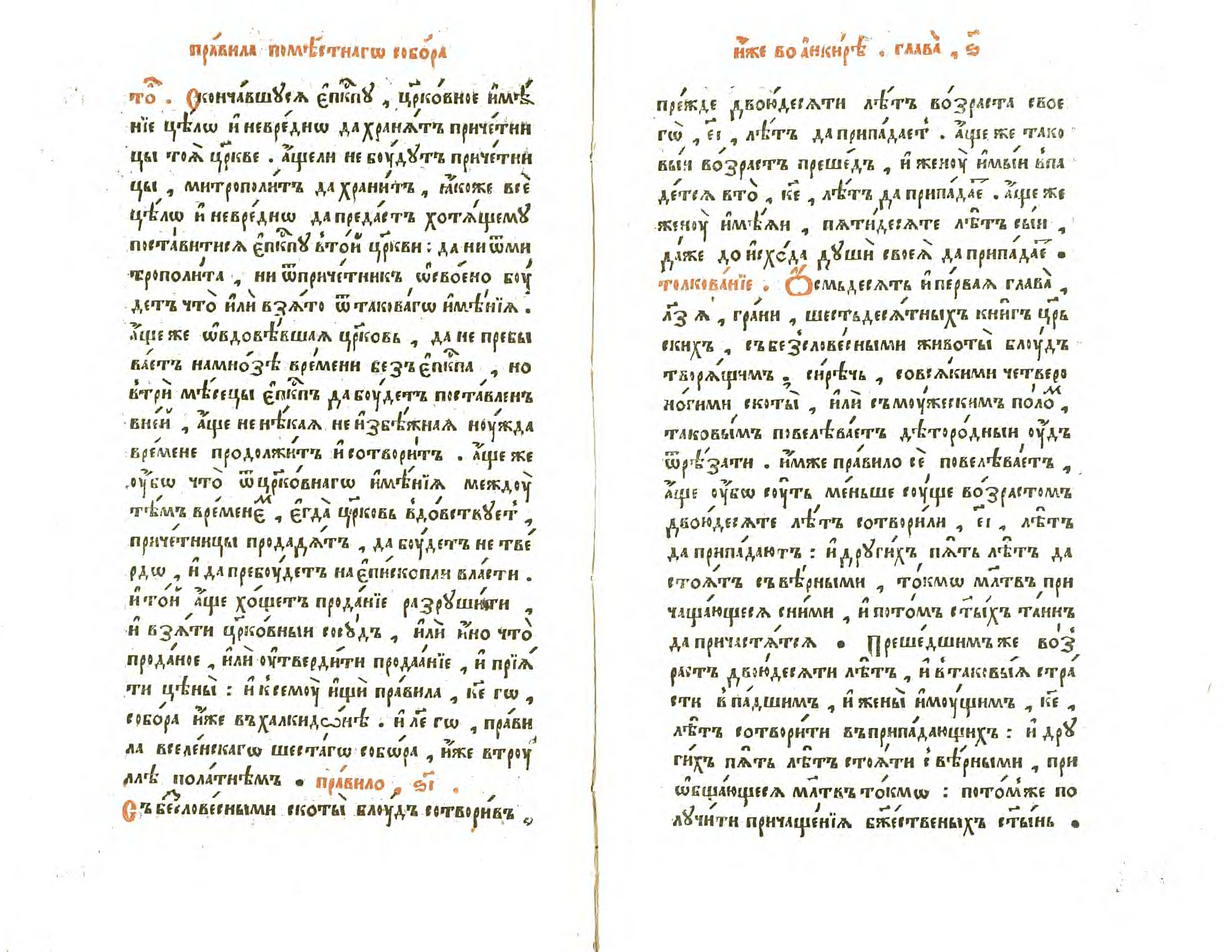 пра́вила помѣ́стнагѡ собо́ра
то̑ . Ѻконча́вшуся є҆пⷭ҇кпꙋ , цр҃ко́вное и҆мѣ́
нїе цѣ́лѡ и҆ невре́днѡ да храня́тъ приче́тни
цы тоя̀ цр҃кве . а҆́щели не бꙋ́дꙋтъ приче́тни
цы , митрополи́тъ да храни́тъ , ꙗ҆́коже всѐ
цѣ́лѡ и҆ невре́днѡ да преда́стъ хотя́щемꙋ
поста́витися є҆пⷭ҇кпꙋ в то́й цр҃кви : да ни ѿ ми
трополи́та , ни ѿ приче́тникъ ѡ҆сво́ено бꙋ́
детъ что̀ и҆лѝ взя́то ѿ такова́гѡ и҆мѣ́нїя .
а҆́ще же ѡ҆вдовѣ́вшая цр҃ковь , да не пребы
ва́етъ на мно́зѣ вре́мени без̾ є҆пⷭ҇кпа , но
в трѝ мѣ́сецы є҆пⷭ҇кпъ да бꙋ́детъ поста́вленъ
в не́й , а҆́ще не нѣ́кая не и҆збѣ́жная нꙋ́жда
вре́мене продолжи́тъ и҆ сотвори́тъ . а҆́ще же
ᲂу҆́бѡ что̀ ѿ цр҃ко́внагѡ и҆мѣ́нїя междꙋ̀
тѣ́мъ вре́менеⷨ , є҆гда̀ цр҃ковь вдо́вствꙋет̾ ,
приче́тницы продадя́тъ , да бꙋ́детъ не тве́
рдѡ , и҆ да пребꙋ́детъ на є҆пи́скопли вла́сти .
и҆ то́й а҆́ще хо́щетъ прода́нїе разрꙋши́ти ,
и҆ взя́ти цр҃ко́вныи сосꙋ́дъ , и҆лѝ и҆́но что̀
про́даное , и҆лѝ ᲂу҆тверди́ти прода́нїе , и҆ прїя́
ти цѣ́нꙋ̀ : и҆ к семꙋ̀ и҆щѝ пра́вила , к҃е гѡ ,
собо́ра и҆́же въ халкидо́нѣ . и҆ л҃е гѡ , пра́ви
ла вселе́нскагѡ шеста́гѡ собѡ́ра , и҆́же в трꙋ́
ллѣ пола́тнѣмъ . пра́вило , ѕ҃і .
Съ бе́словесными скоты̀ блꙋ́дъ сотвори́въ ,
и҆́же во а҆нки́рѣ . глава̀ , ѕ҃
пре́жде двою́десяти лѣ́тъ во́зраста свое
гѡ̀ , є҃і , лѣ́тъ да припа́дает̾ . а҆́ще же тако
вы́и во́зрастъ преше́дъ , и҆ женꙋ̀ и҆мы́и впа
де́тся в то̀ , к҃е , лѣ́тъ да припа́даеⷮ . а҆́ще же
женꙋ̀ и҆мѣ́яи , пяти́десяте лѣ́тъ сы́и ,
да́же до и҆схо́да дꙋшѝ своея̀ да припа́даеⷮ .
толкова́нїе . Ѻсмьдеся́тъ и҆ пе́рвая глава̀ ,
л҃з я҆ , гра́ни , шестьдеся́тныхъ кни́гъ цр҃ь
скихъ , съ безслове́сными живо́ты блꙋ́дъ
творя́щимъ , си́рѣчь , со вся́кими четверо
но́гими скоты̀ , и҆лѝ съ мꙋ́жескимъ по́лоⷨ ,
таковы́мъ повелѣва́етъ дѣторо́дныи ᲂу҆́дъ
ѿрѣ́зати . и҆́мже пра́вило сѐ повелѣва́етъ ,
а҆́ще ᲂу҆́бѡ сꙋ́ть ме́ньше сꙋ́ще во́зрастомъ
двою́десяте лѣ́тъ сотвори́ли , є҃і , лѣ́тъ
да припа́даютъ : и҆ дрꙋги́хъ пя́ть лѣ́тъ да
стоя́тъ съ вѣ́рными , то́кмѡ мл҃твъ при
чаща́ющеся с ни́ми , и҆ пото́мъ ст҃ы́хъ та́инъ
да причастя́тся . Преше́дшимъ же во́з
растъ двою́десяти лѣ́тъ , и҆ в таковы́я стра́
сти впа́дшимъ , и҆ жены̀ и҆мꙋ́щимъ , к҃е ,
лѣ́тъ сотвори́ти въ припа́дающихъ : и҆ дрꙋ
ги́хъ пя́ть лѣ́тъ стоя́ти с вѣ́рными , при
ѡ҆бща́ющеся мл҃твъ то́кмѡ : пото́мже по
лꙋчи́ти причаще́нїя бж҃е́ственыхъ ст҃ы́нь .